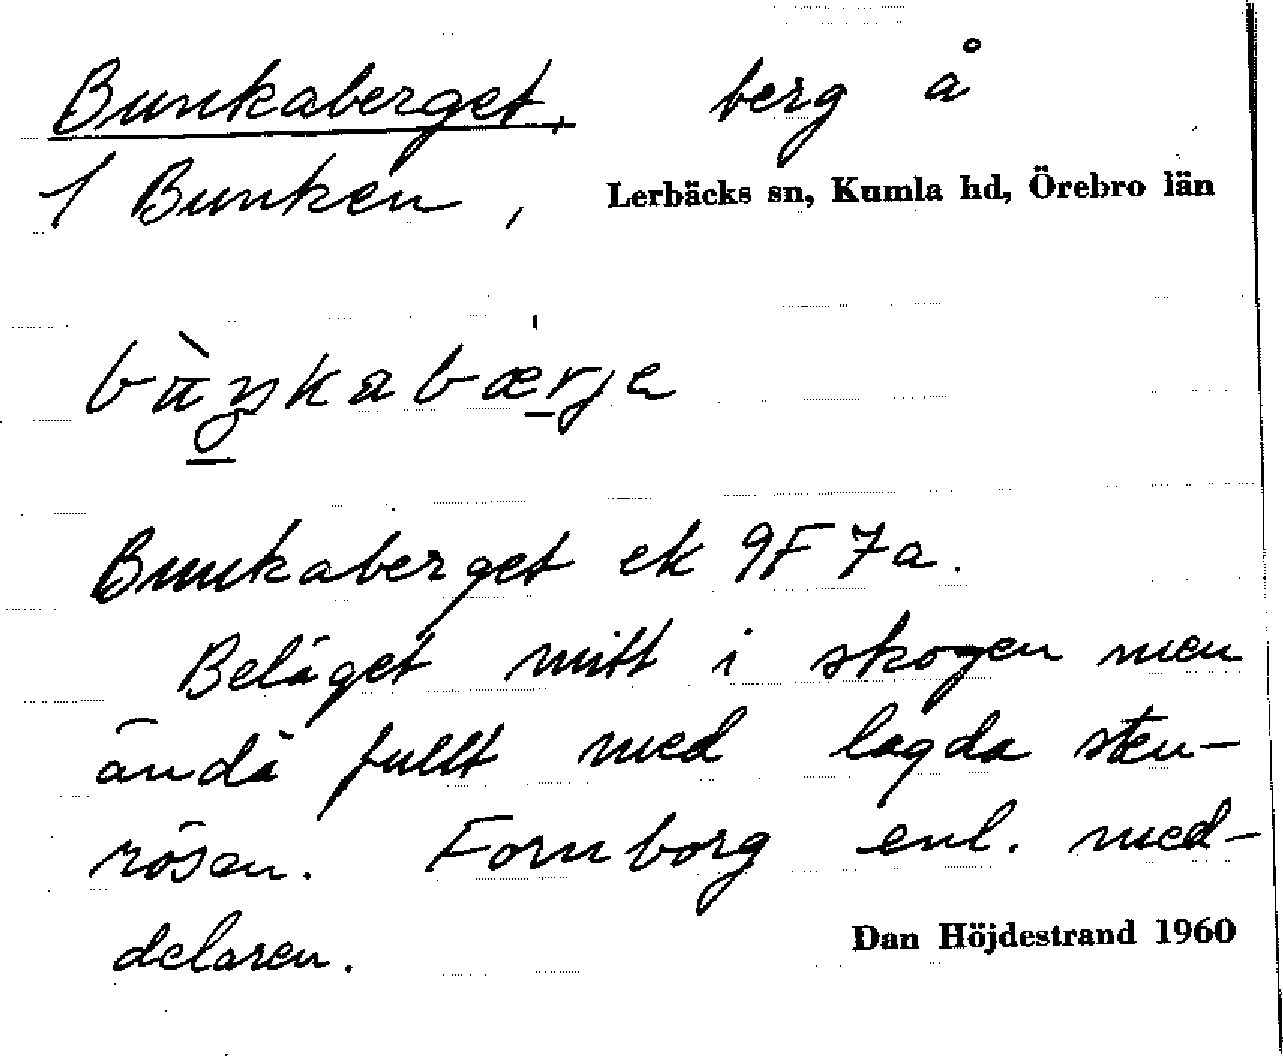 Bunkaberget, berg å
1 Bunken, Lerbäcks sn, Kumla hd, Örebro län
Bunkaberget ek 9F 7a.
Beläget mitt i skogen men
ändå fullt med lagda sten-
rösen. Fornborg enl. med-
delaren.
Dan Höjdestrand 1960